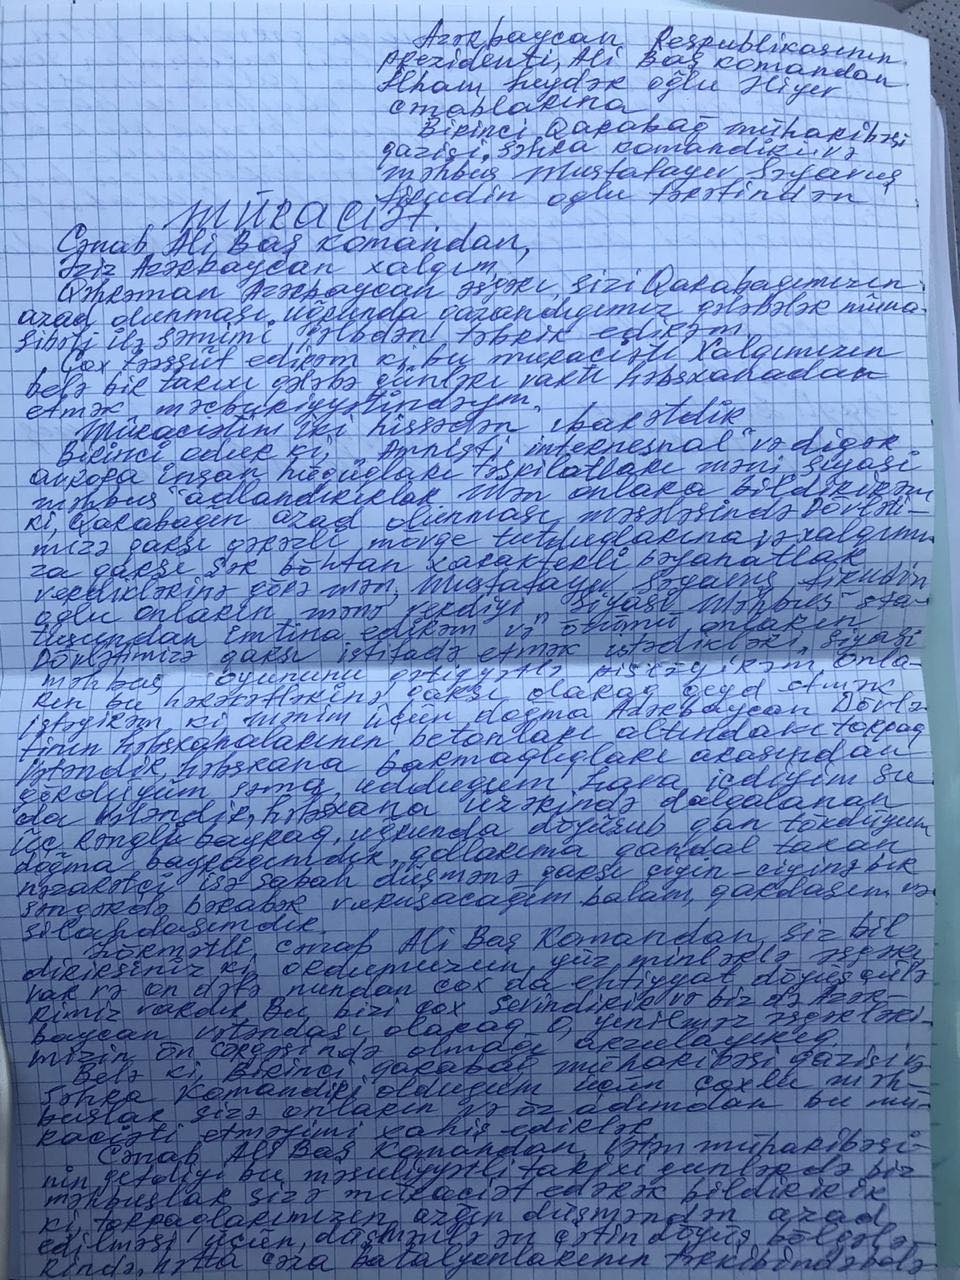 Azərbaycan Respublikasının
Prezidenti, Ali Baş komandan
İlham heydər oğlu Əliyev
cənablarına
Birinci Qarabağ müharibəsi
qazisi, səhra komandiri və
məhbus Mustafayev Səyavuş
oğlu tərəfindən
müraciət
Cənab Ali Baş komandan,
Əziz Azərbaycan xalqım,
Qəhrəman Azərbaycan əsgəri, sizi Qarabağımızın
azad olunması uğrunda qazandığımız qələbələr müna-
sibəti ilə səmimi qəlbdən təbrik edirəm.
Çox təəssüf edirəm ki, bu müraciəti Xalqımızın
belə bir tarixi qələbə günləri vaxtı həbsxanadan
etmək məcburiyyətindəyəm.
Müraciətim iki hissədən ibarətdir
Birinci odur ki, "Amnisti interneşnal" və digər
avropa insan hüquqları təşkilatları məni "siyasi
məhbus" adlandırırlar. Mən onlara bildirirəm
ki, Qarabağın azad olunması məsələsində Dövləti-
mizə qarşı qərəzli mövqe tutduqlarına və xalqımı-
za qarşı şər böhtan xarakterli bəyanatlar
verdiklərinə görə mən, Mustafayev Səyavuş
oğlu onların mənə verdiyi "Siyasi Məhbus" sta-
tusundan imtina edirəm və özümü onların
Dövlətimizə qarşı istifadə etmək istədikləri "siyasi
məhbus" oyununu qətiyyətlə pisləyirəm. Onla-
rın bu hərəkətlərinə qarşı olaraq qeyd etmək
istəyirəm ki, mənim üçün doğma Azərbaycan Dövlə-
tinin həbsxanalarının betonları altındakı torpaq
Vətəndir, həbsxana barmaqlıqları arasından
gördüyüm səma, udduğum hava içdiyim su
da Vətəndir, həbsxana üzərində dalğalanan
üç rəngli bayraq, uğrunda döyüşüb qan tökdüyüm
doğma bayrağımdır, qollarıma qandal taxan
nəzarətçi isə sabah düşmənə qarşı çiyin-çiyinə bir
səngərdə bərabər vuruşacağım balam, qardaşım və
silahdaşımdır.
Hörmətli cənab Ali Baş Komandan, siz bil
dirirsiniz ki, ordumuzun yüz minlərlə əsgəri
var və on dəfə bundan çox da ehtiyyat döyüşçülə
rimiz vardır. Bu bizi çox sevindirir və biz də Azər-
baycan vətəndaşı olaraq o, yenilməz əsgərləri-
mizin ön cərgəsində olmağı arzulayırıq
Belə ki, Birinci qarabağ müharibəsi qazisi və
səhra Komandiri olduğum üçün çoxlu məh-
buslar sizə onların və öz adımdan bu mü-
raciəti etməyimi xahiş ediblər
Cənab Ali Baş Komandan, Vətən müharibəsi-
nin getdiyi bu məsuliyyətli, tarixi günlərdə biz
məhbuslar sizə müraciət edərək bildiririk
ki, torpaqlarımızın azğın düşməndən azad
edilməsi üçün, düşmənlə ən çətin döyüş bölgələ-
rində, hətta cəza batalyonlarının tərkibində belə